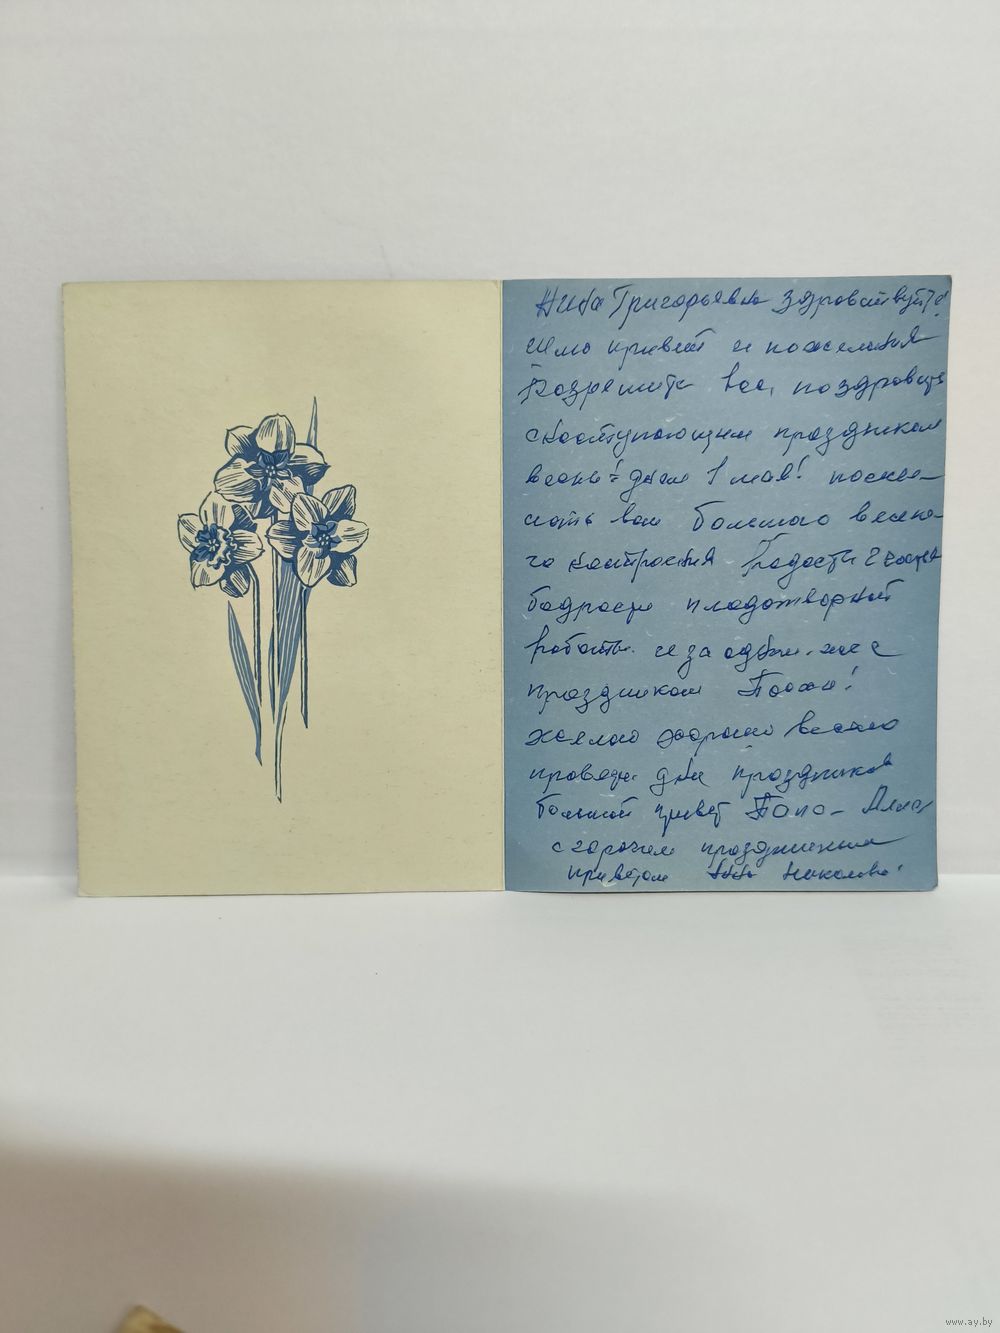 Нина Григорьевна здравствуйте!
Шлю привет и пожелания
Разрешите вас, поздравить
с наступающим праздником
весны! днем 1 мая! поже-
лать вам большого весен-
го настроения радости счастья
бодрости плодотворной
работы. и за одним. же с
праздником Пасхи!
желаю хорошо весело
провести дни праздников
большой привет Папе - Алле,
с горячим праздничным
приветом
www.ay.by